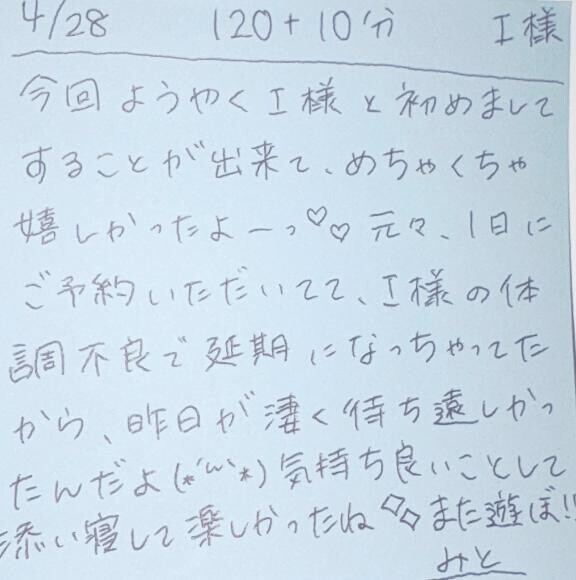 4/28 120+10分 I様
今回ようやくI様と初めまして
することが出来て、めちゃくちゃ
嬉しかったよーっ♡♡ 元々、1日に
ご予約いただいてて、I様の体
調不良で延期になっちゃってた
から、昨日が凄く待ち遠しかっ
たんだよ(*´ω`*)気持ち良いことして
添い寝して楽しかったね◇◇また遊ぼ!!
みと